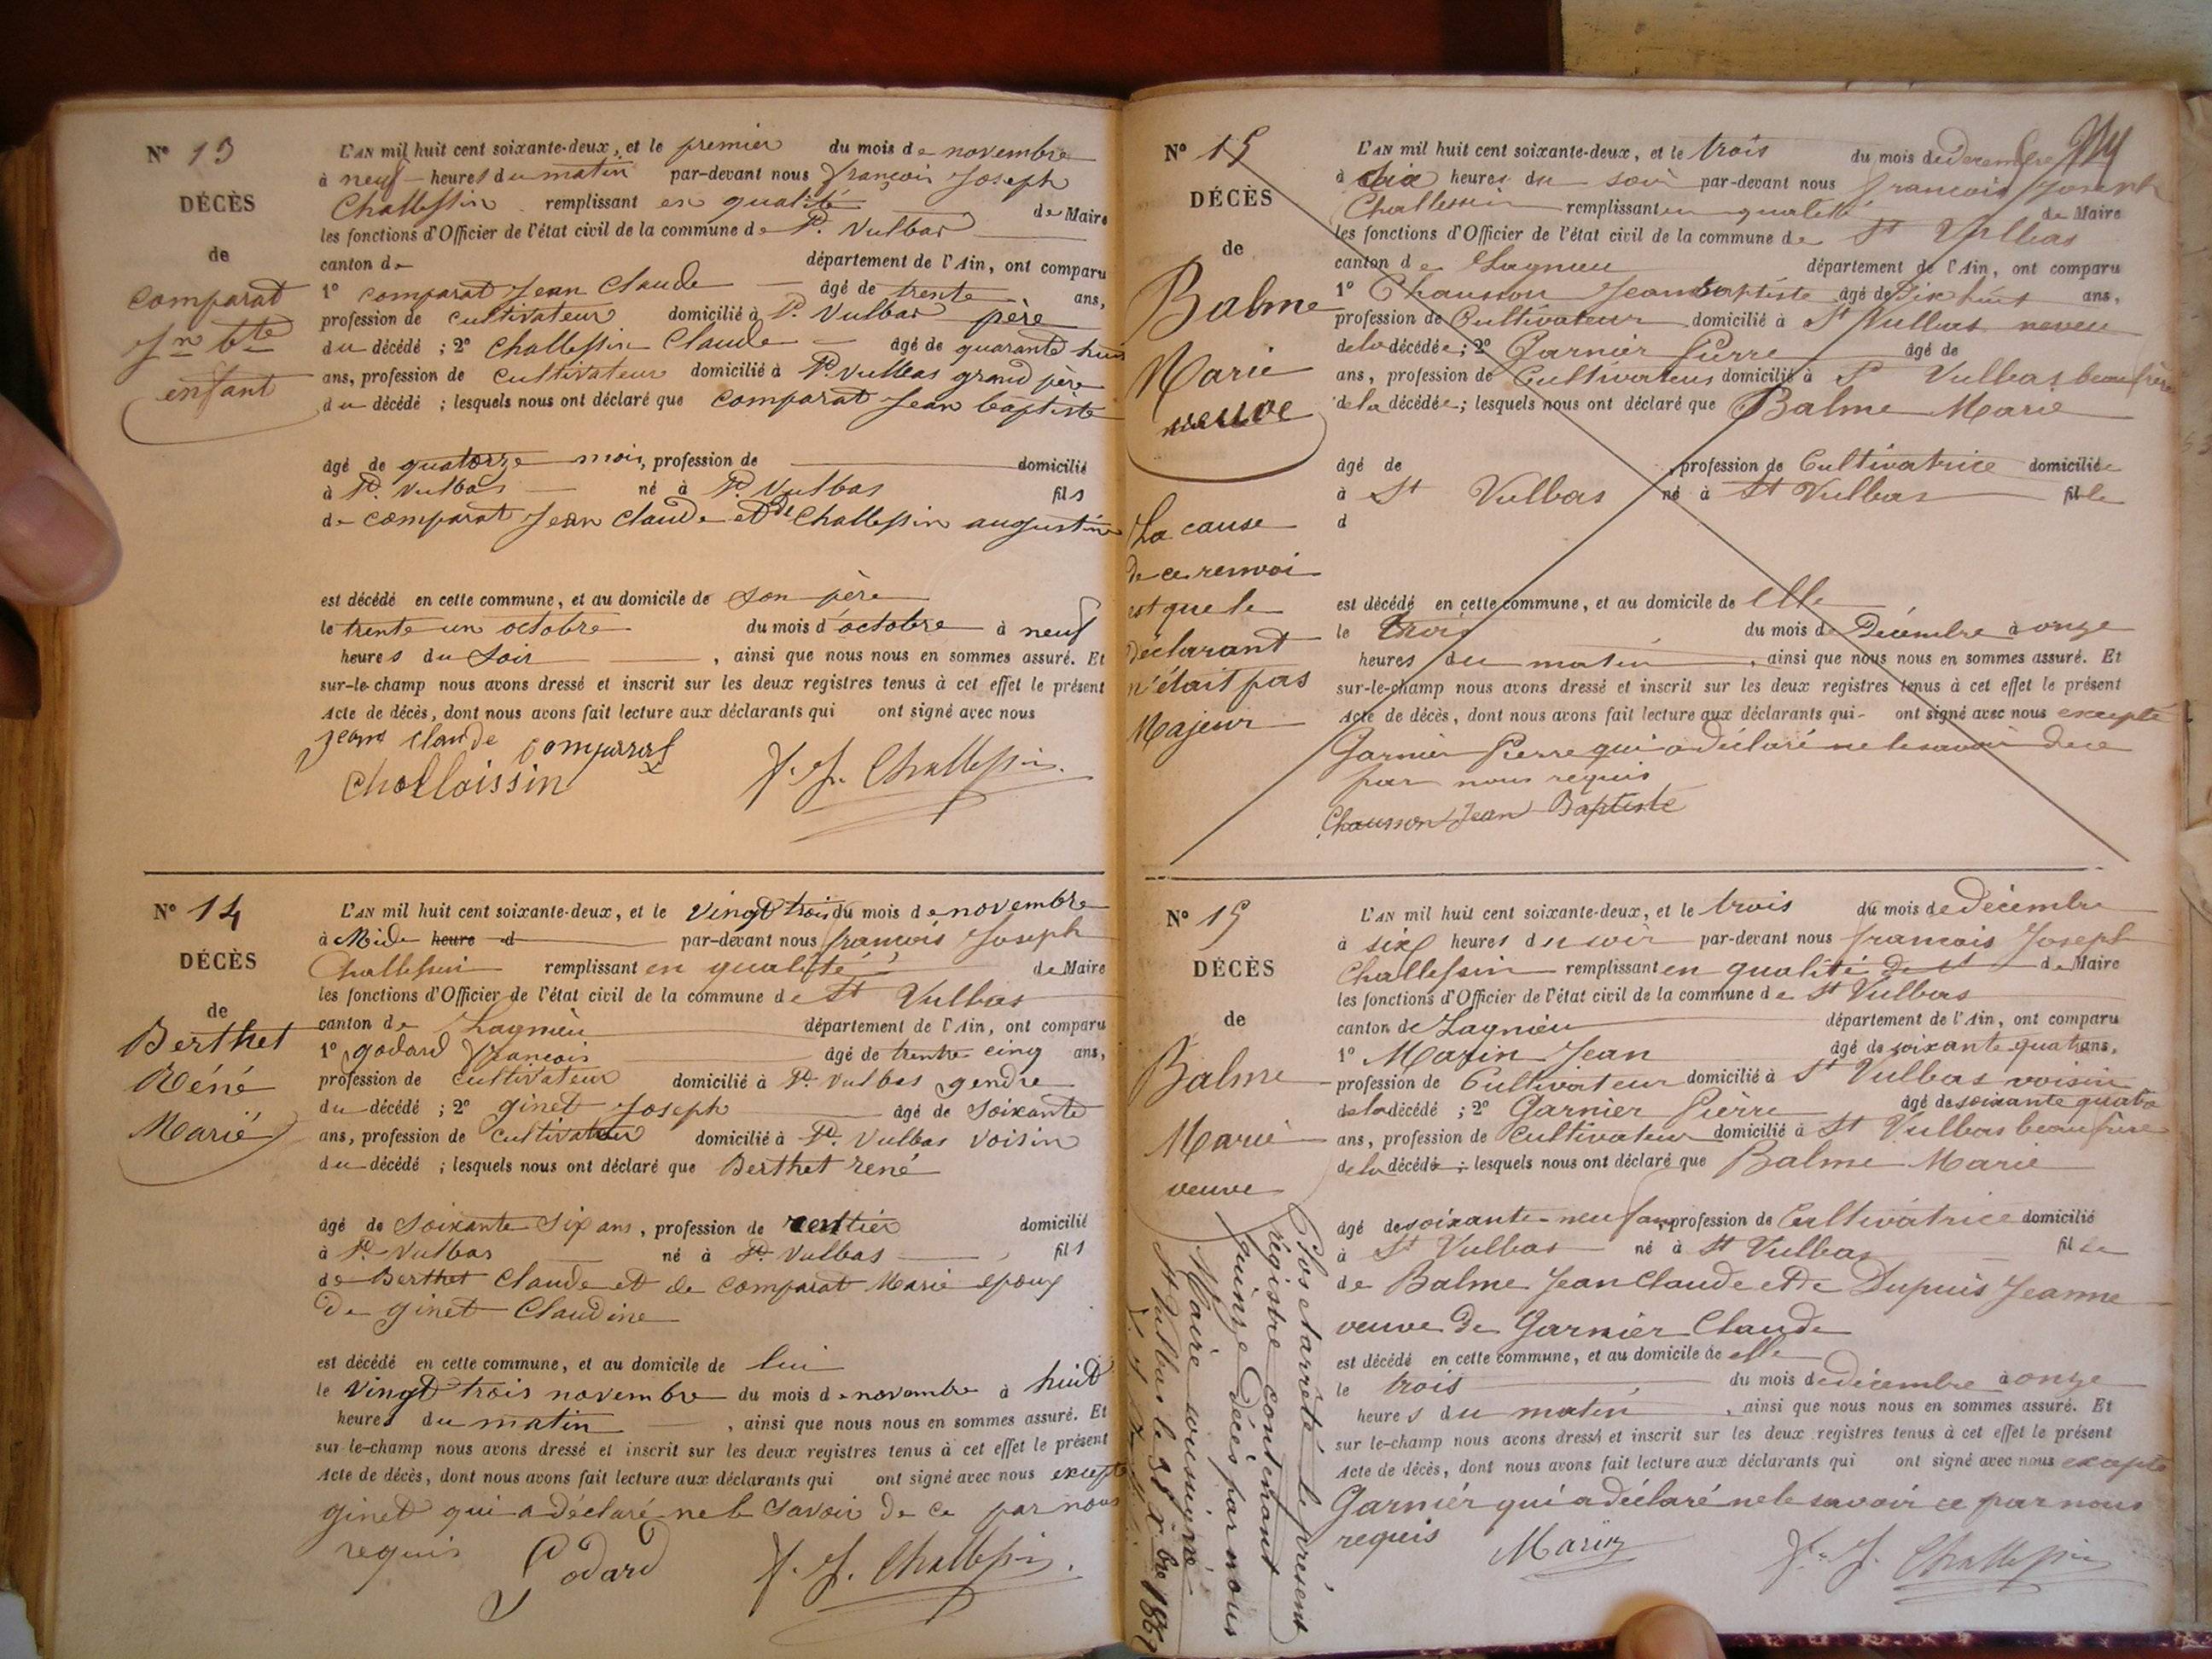 N° 13
DÉCÈS
de
Comparat
Jn bte
enfant
L'AN mil huit cent soixante-deux, et le premier du mois de novembre
à neuf heures du matin par-devant nous françois Joseph
Challessin remplissant en qualité de Maire
les fonctions d'Officier de l'état civil de la commune de St. Vulbas
canton de département de l'Ain, ont comparu
1° comparat Jean Claude âgé de trente ans,
profession de cultivateur domicilié à St. Vulbas père
du décédé ; 2° Challessin Claude âgé de quarante huit
ans, profession de cultivateur domicilié à St. Vulbas grand père
du décédé ; lesquels nous ont déclaré que comparat Jean baptiste
âgé de quatorze mois, profession de domicilié
à St. Vulbas né à St. Vulbas fils
de comparat Jean Claude et de Challessin augustine
est décédé en cette commune, et au domicile de son père
le trente un octobre du mois d'octobre à neuf
heures du soir , ainsi que nous nous en sommes assuré. Et
sur-le-champ nous avons dressé et inscrit sur les deux registres tenus à cet effet le présent
Acte de décès, dont nous avons fait lecture aux déclarants qui ont signé avec nous
jean claude comparat
Challaissin F. J. Challessin
N° 14
DÉCÈS
de
Berthet
Réné
Marié
L'AN mil huit cent soixante-deux, et le vingt trois du mois de novembre
à Midi heure d par-devant nous françois Joseph
Challessin remplissant en qualité de Maire
les fonctions d'Officier de l'état civil de la commune de St Vulbas
canton de Lagnieu département de l'Ain, ont comparu
1° godard françois âgé de trente cinq ans,
profession de cultivateur domicilié à St. Vulbas gendre
du décédé ; 2° ginet Joseph âgé de soixante
ans, profession de cultivateur domicilié à St. Vulbas voisin
du décédé ; lesquels nous ont déclaré que Berthet rené
âgé de soixante six ans, profession de rentier domicilié
à St Vulbas né à St. Vulbas fils
de Berthet Claude et de comparat Marie époux
de ginet Claudine
est décédé en cette commune, et au domicile de lui
le vingt trois novembre du mois de novembre à huit
heures du matin , ainsi que nous nous en sommes assuré. Et
sur-le-champ nous avons dressé et inscrit sur les deux registres tenus à cet effet le présent
Acte de décès, dont nous avons fait lecture aux déclarants qui ont signé avec nous excepté
ginet qui a déclaré ne le savoir de ce par nous
requis Godard F. J. Challessin.
N° 15
DÉCÈS
de
Balme
Marie
veuve
La cause
de ce renvoi
est que le
déclarant
n'était pas
Majeur
L'AN mil huit cent soixante-deux, et le trois du mois de decembre
à six heures du soir par-devant nous francois Joseph
Challessin remplissant en qualité de Maire
les fonctions d'Officier de l'état civil de la commune de St Vulbas
canton de Lagnieu département de l'Ain, ont comparu
1° Chausson Jean Baptiste âgé de Dix huit ans,
profession de Cultivateur domicilié à St Vulbas neveu
de la décédée ; 2° Garnier Pierre âgé de
ans, profession de Cultivateur domicilié à St Vulbas beau frère
de la décédée ; lesquels nous ont déclaré que Balme Marie
âgé de , profession de Cultivatrice domiciliée
à St Vulbas né à St Vulbas fille
d
est décédé en cette commune, et au domicile de elle
le trois du mois de Décembre à onze
heures du matin , ainsi que nous nous en sommes assuré. Et
sur-le-champ nous avons dressé et inscrit sur les deux registres tenus à cet effet le présent
Acte de décès, dont nous avons fait lecture aux déclarants qui ont signé avec nous excepté
Garnier Pierre qui a déclaré ne le savoir de ce
par nous requis
Chausson Jean Baptiste
N° 15
DÉCÈS
de
Balme
Marie
veuve
L'AN mil huit cent soixante-deux, et le trois du mois de décembre
à six heures du soir par-devant nous francois Joseph
Challessin remplissant en qualité de Maire
les fonctions d'Officier de l'état civil de la commune de St Vulbas
canton de Lagnieu département de l'Ain, ont comparu
1° Marin Jean âgé de soixante quat ans,
profession de Cultivateur domicilié à St Vulbas voisin
de la décédé ; 2° Garnier Pierre âgé de soixante quatre
ans, profession de Cultivateur domicilié à St Vulbas beau frère
de la décédé ; lesquels nous ont déclaré que Balme Marie
âgé de soixante-neuf ans, profession de Cultivatrice domicilié
à St Vulbas né à St Vulbas fille
de Balme Jean Claude et de Dupuis Jeanne
veuve de Garnier Claude
est décédé en cette commune, et au domicile de elle
le trois du mois de décembre à onze
heures du matin , ainsi que nous nous en sommes assuré. Et
sur-le-champ nous avons dressé et inscrit sur les deux registres tenus à cet effet le présent
Acte de décès, dont nous avons fait lecture aux déclarants qui ont signé avec nous excepté
Garnier qui a déclaré ne le savoir ce par nous
requis Marin F. J. Challessin
Clos et arrêté le présent
régistre contenant
quinze Décès par nous
Maire soussigné
St Vulbas le 31 Xbre 1862